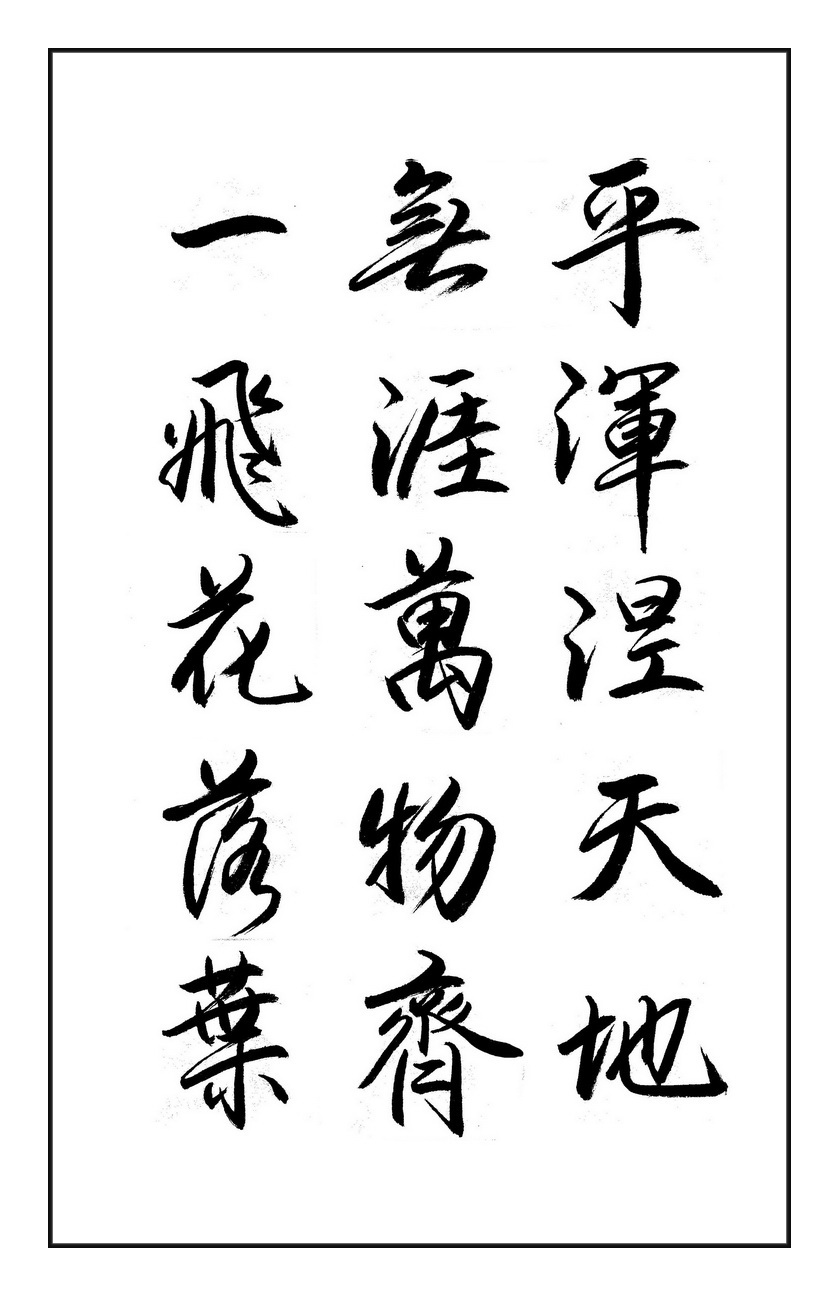 平渾涅天地
無涯萬物齊
一飛花落葉